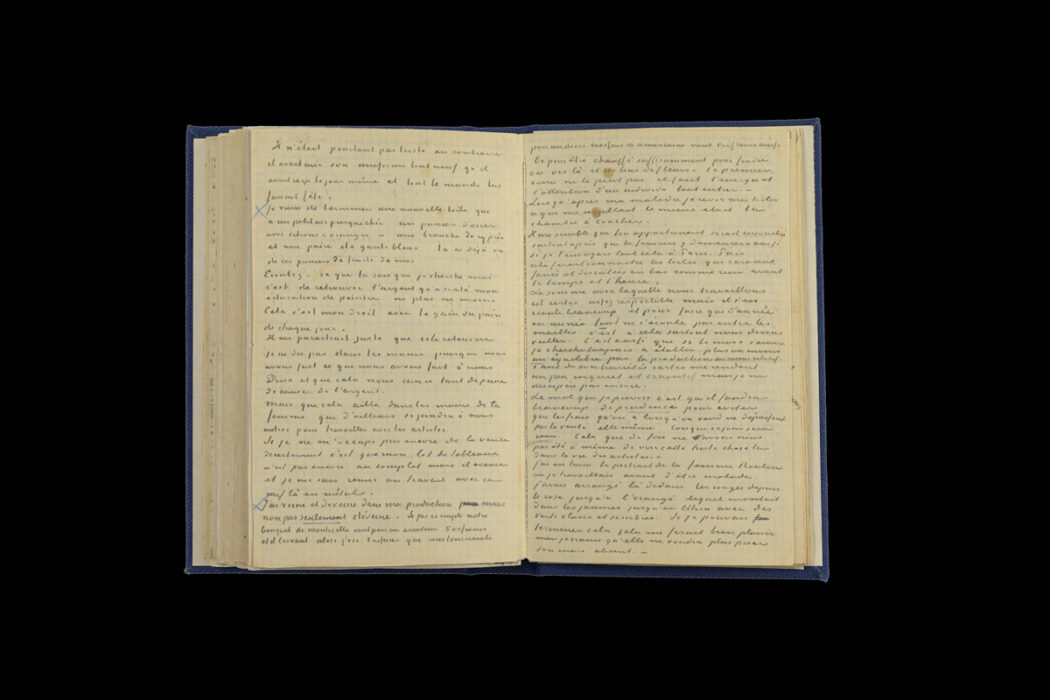 Il n'était pourtant pas triste au contraire
il avait mis son uniforme tout neuf qu'il
avait reçu le jour même et tout le monde lui
faisait fête.
Je viens de terminer une nouvelle toile qui
a un petit air presque chic un panier d'osier
avec citrons & oranges – une branche de cyprès
et une paire de gants bleus. tu as déjà vu
de ces paniers de fruits de moi.
Ecoutez – ce que tu sais que je cherche moi
c'est de retrouver l'argent qu'a coûté mon
éducation de peintre ni plus ni moins.
Cela c'est mon droit avec le gain du pain
de chaque jour.
Il me paraitrait juste que cela retourne
je ne dis pas dans tes mains puisque nous
avons fait ce que nous avons fait à nous
Deux et que cela nous cause tant de peine
de causer de l'argent.
mais que cela aille dans les mains de ta
femme qui d'ailleurs se joindra à nous
autres pour travailler avec les artistes.
Si je ne m'occupe pas encore de la vente
directement c'est que mon lot de tableaux
n'est pas encore au complet mais il avance
et je me suis remis au travail avec ce
nerf là en métal.
J'ai veine et déveine dans ma production mais
non pas seulement déveine. Si par exemple notre
bouquet de monticelli vaut pour un amateur 500 francs
et il les vaut alors j'ose t'assurer que mes tournesols
3
pour un de ces Ecossais ou américains vaut 500 francs aussi.
Or pour être chauffé suffisamment pour fondre
ces ors là et ces tons de fleurs – le premier
venu ne le peut pas il faut l'énergie et
l'attention d'un individu tout entier. –
Lorsqu'après ma maladie je revis mes toiles
ce qui me paraissait le mieux était la
chambre à coucher.
si je t'envoyais tout cela à Paris. Mais
le temps et l'heure.
La somme avec laquelle nous travaillons
est certes assez respectable mais il s'en
écoule beaucoup et pour faire que d'année
en année tout ne s'écoule pas entre les
mailles c'est à cela surtout nous devons
veiller. C'est aussi que si le mois s'avance
je cherche toujours à établir plus ou moins
un équilibre par la production au moins relatif.
Tant de contrariétés certes me rendent
un peu inquiet et craintif mais je ne
désespère pas encore.
Le mal que je prévois c'est qu'il faudra
beaucoup de prudence pour éviter
que les frais qu'on a lorsqu'on vend ne dépassent
pas la vente elle même lorsque ce jour sera
venu. Cela que de fois ne avons nous
pas été à même de voir cette triste chose là
dans la vie des artistes. –
J'ai en train le portrait de la femme Roulin
où je travaillais avant d'être malade.
J'avais arrangé là dedans les rouges depuis
le rose jusqu'à l'orangé lequel montait
dans les jaunes jusqu'au citron avec des
verts clairs et sombres. Si je pouvais
terminer cela cela me ferait bien plaisir
mais je crains qu'elle ne voudra plus poser
son mari absent. –